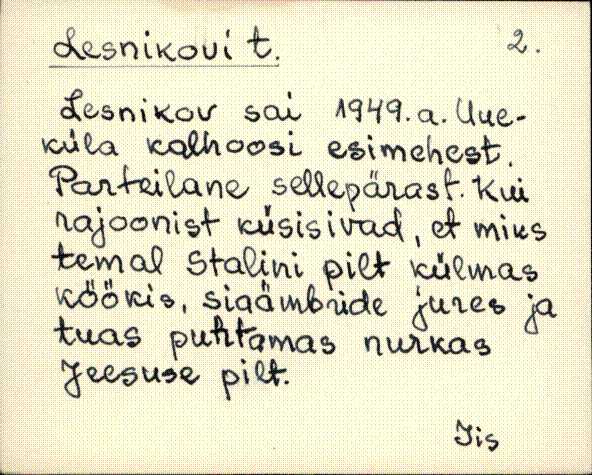 Lesnikovi t. 2.
Lesnikov sai 1949.a. Uue-
küla kalhoosi esimehest.
Parteilane sellepärast. Kui
rajoonist küsisivad, et miks
temal Stalini pilt külmas
köökis, siaämbride jures ja
tuas puhtamas nurkas
Jeesuse pilt.
Iis